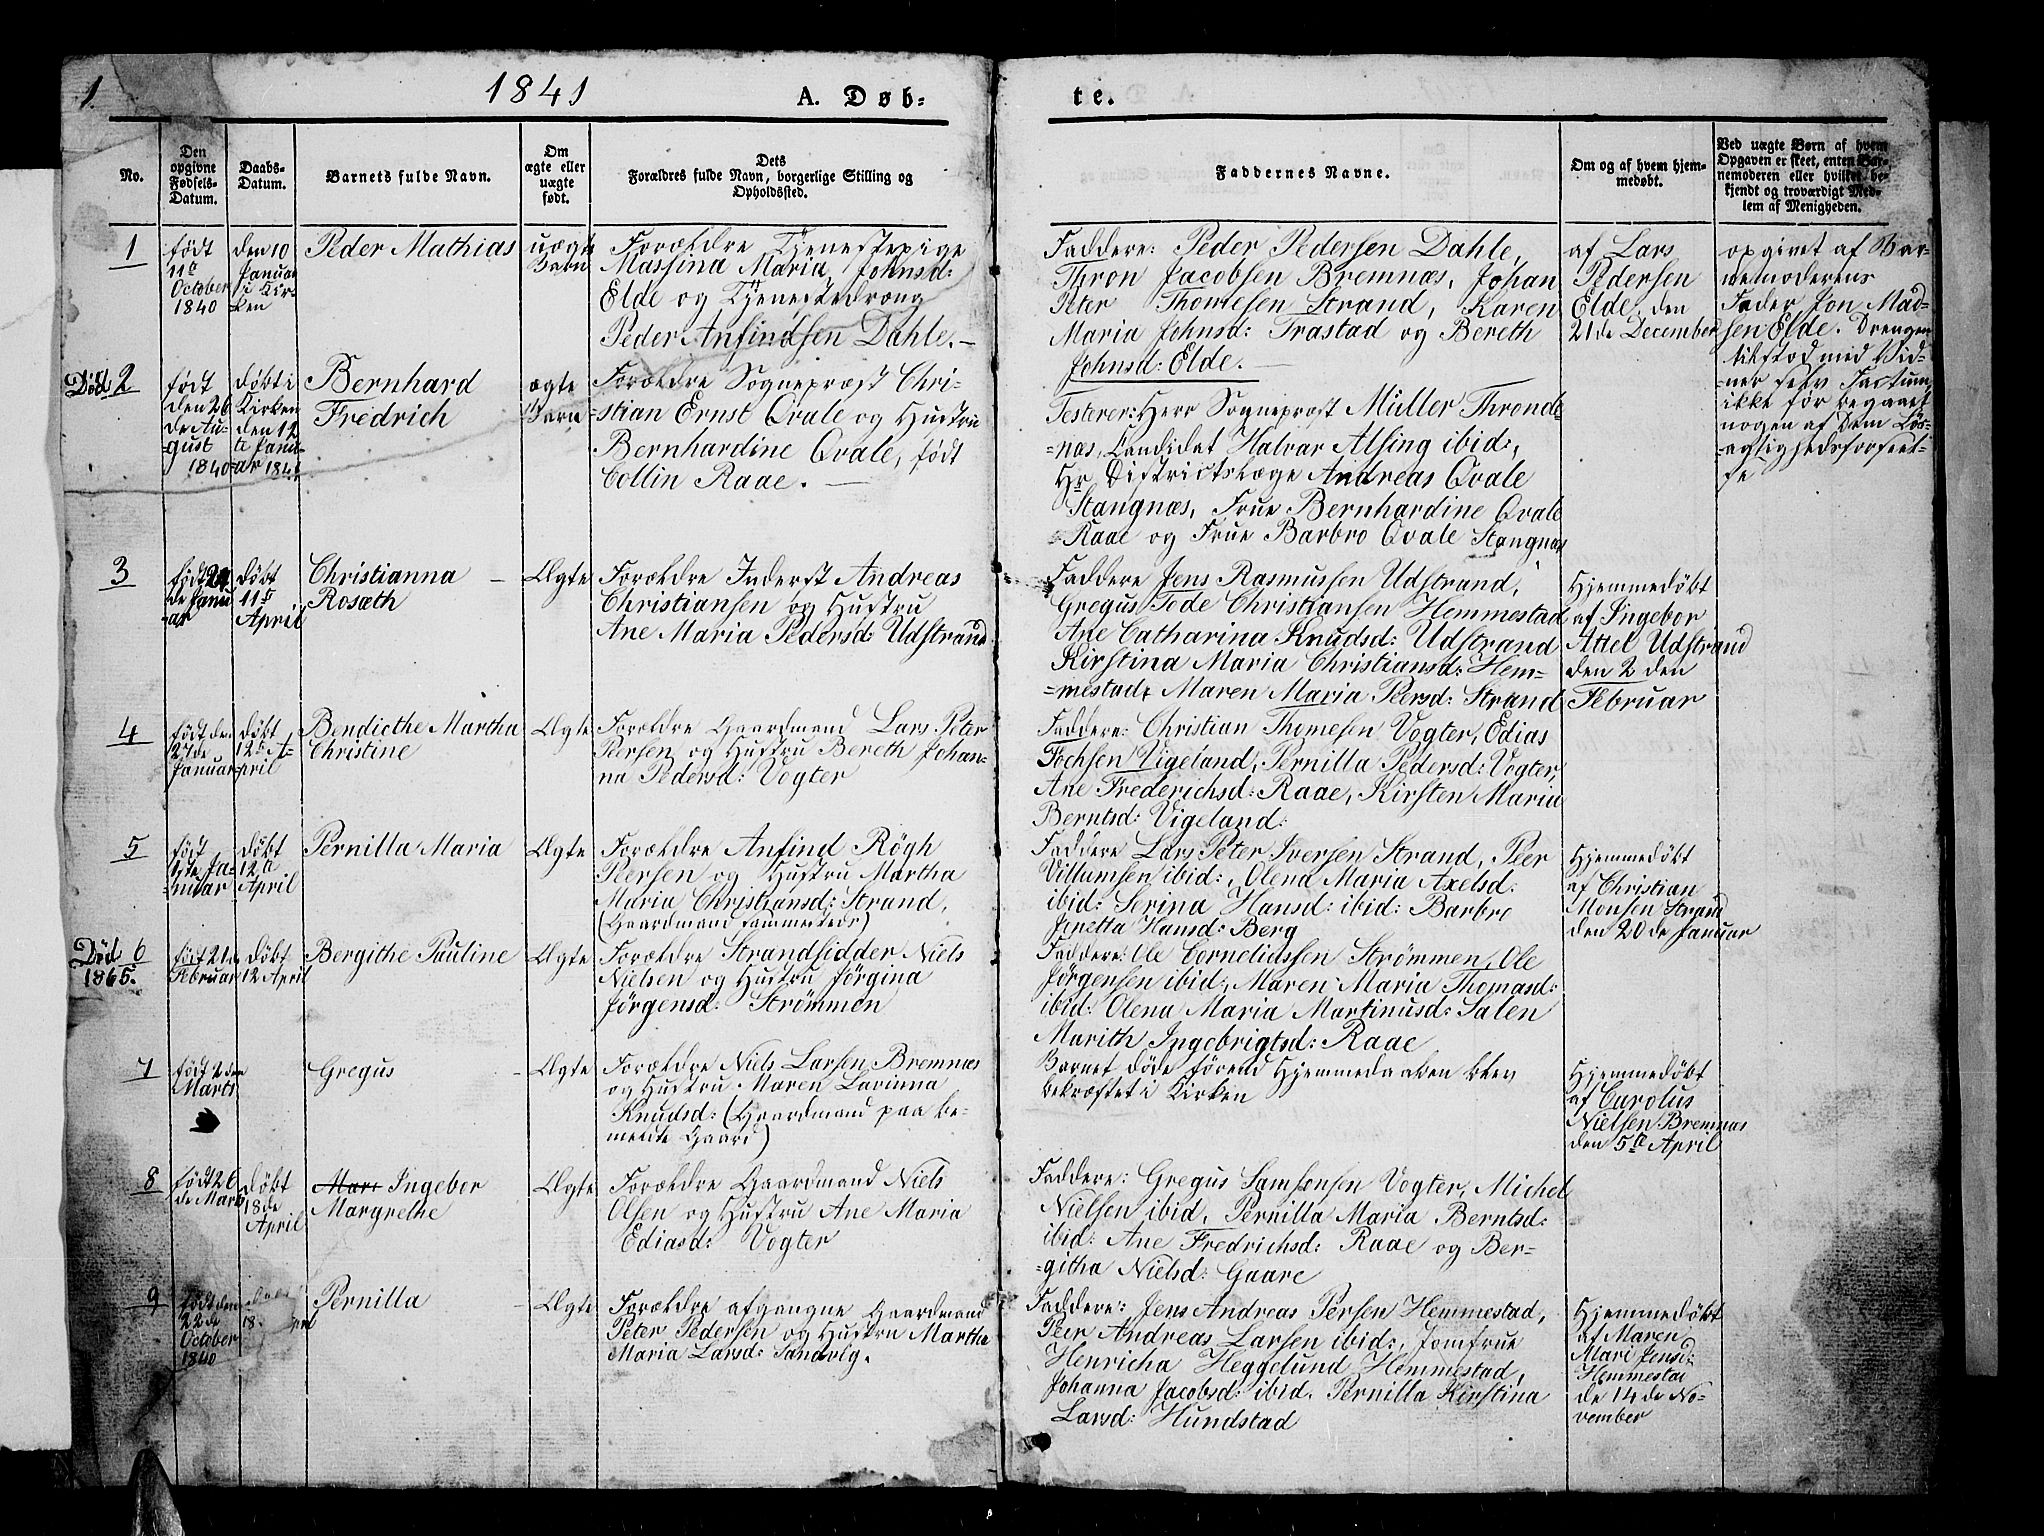 1
1841
A. Døb-
te.
No.
Den
opgivne
Fødsels-
Datum.
Daabs-
Datum.
Barnets fulde Navn.
Om
ægte eller
uægte
født.
Dets
Forældres fulde Navn, borgerlige Stilling og
Opholdssted.
Faddernes Navne.
Om og af hvem hjem-
medøbt.
Ved uægte Børn af hvem
Opgaven er skeet, enten Bar-
nemoderen eller hvilket be-
kjendt og troværdigt Med-
lem af Menigheden.
1
født
11te
October
1840
den 10
Januar
i Kir-
ken
Peder Mathias
uægte
Barn
Forældre Tjenestepige
Massina Maria Johnsd:
Elde og Tjenestedreng
Peder Anfindsen Dahle.
Faddere: Peder Pedersen Dahle,
Thron Jacobsen Bremnæs, Johan
Peter Thomesen Strand, Karen
Maria Johnsd: Trastad og Bereth
Johnsd: Elde.
af Lars
Pedersen
Elde, den
21de December
opgivet af Bar-
nemoderens
Fader Jon Mad-
sen Elde. Drengen
tilstod med Vid-
ner selv Factum,
ikke før begaaet
nogen af Dem Løs-
agtighedsforseel-
se
Død 2
født
den 26
de Au-
gust
1840
døbt i
Kirken
den 12
te Janu-
ar 1841
Bernhard
Fredrich
ægte
Barn
Forældre Sognepræst Chri-
stian Ernst Qvale og Hustru
Bernhardine Qvale, født
Collin Raae.
Testerer: Herr Sognepræst Müller Thronde-
næs, Candidat Halvar Alsing ibid:,
Hr Districtslæge Andreas Qvale
Stangnæs, Frue Bernhardine Qvale
Raae og Frue Barbro Qvale Stangnæs
3
født 24
de Janu
ar
døbt
11te
April
Christianna
Rosæth
Ægte
Forældre Inderst Andreas
Christiansen og Hustru
Ane Maria Pedersd: Udstrand
Faddere Jens Rasmussen Udstrand,
Gregus Tode Christiansen Hemmestad
Ane Catharina Knudsd: Udstrand
Kirstina Maria Christiansd: Hem-
mestad, Maren Maria Peersd: Strand
Hjemmedøbt
af Ingebor
Attel Udstrand
den 2 den
Februar
4
født den
27de
Januar
døbt
12te A-
pril
Bendicthe Martha
Christine
Ægte
Forældre Gaardmand Lars Peter
Persen og Hustru Bereth Johan-
na Pedersd: Vogter
Faddere: Christian Thomesen Vogter, Edias
Fochsen Vigeland, Pernilla Pedersd: Vogter,
Ane Frederichsd: Raae, Kirsten Maria
Berntsd: Vigeland:
5
født
Ja-
nuar
døbt
12te
April
Pernilla Maria
Ægte
Forældre Anfind Rögh
Peersen og Hustru Martha
Maria Christiansd: Strand,
(Gaardmand sammesteds)
Faddere Lars Peter Iversen Strand, Peer
Villumsen ibid:, Olena Maria Axelsd:
ibid: Serina Hansd: ibid: Barbro
Jinetta Hansd: Berg
Hjemmedøbt
af Christian
Monsen Strand
den 20 de Januar
Død 6
1865.
født 21de
Februar
døbt
12 April
Bergithe Pauline
Ægte
Forældre Strandsidder Niels
Nielsen og Hustru Jörgina
Jörgensd: Strømmen
Faddere: Ole Corneliussen Strømmen, Ole
Jörgensen ibid:, Maren Maria Thomasd:
ibid: Olena Maria Martinusd: Salen
Marith Ingebrigtsd: Raae
7
født 2den
Marts
Gregus
Ægte
Forældre Niels Larsen Bremnæs
og Hustru Maren Lavinna
Knudsd: (Gaardmand paa be-
meldte Gaard)
Barnet døde förend Hjemmedaaben blev
bekræftet i Kirken
Hjemmedøbt
af Carolus
Nielsen Bremnæs
den 5te April
8
født 26
de Marts
døbt
18de
April
Mari Ingebor
Margrethe
Ægte
Forældre Gaardmand Niels
Olsen og Hustru Ane Maria
Ediasd: Vogter
Faddere: Gregus Samsonsen Vogter, Michel
Nielsen ibid, Pernilla Maria Berntsd:
ibid: Ane Fredrichsd: Raae og Ber-
githa Nielsd: Gaare
9
født den
22de
October
1840
18.
Pernilla
Ægte
Forældre afgangne Gaardmand
Peter Pedersen og Hustru Martha
Maria Larsd: Sandvig.
Faddere: Jens Andreas Persen Hemmestad,
Peer Andreas Larsen ibid:, Jomfrue
Henricha Heggelund Hemmestad,
Johanna Jacobsd: ibid, Pernilla Kirstina
Larsd: Hundstad
Hjemmedøbt
af Maren
Mari Jensd:
Hemmestad
de 14 de No-
vember